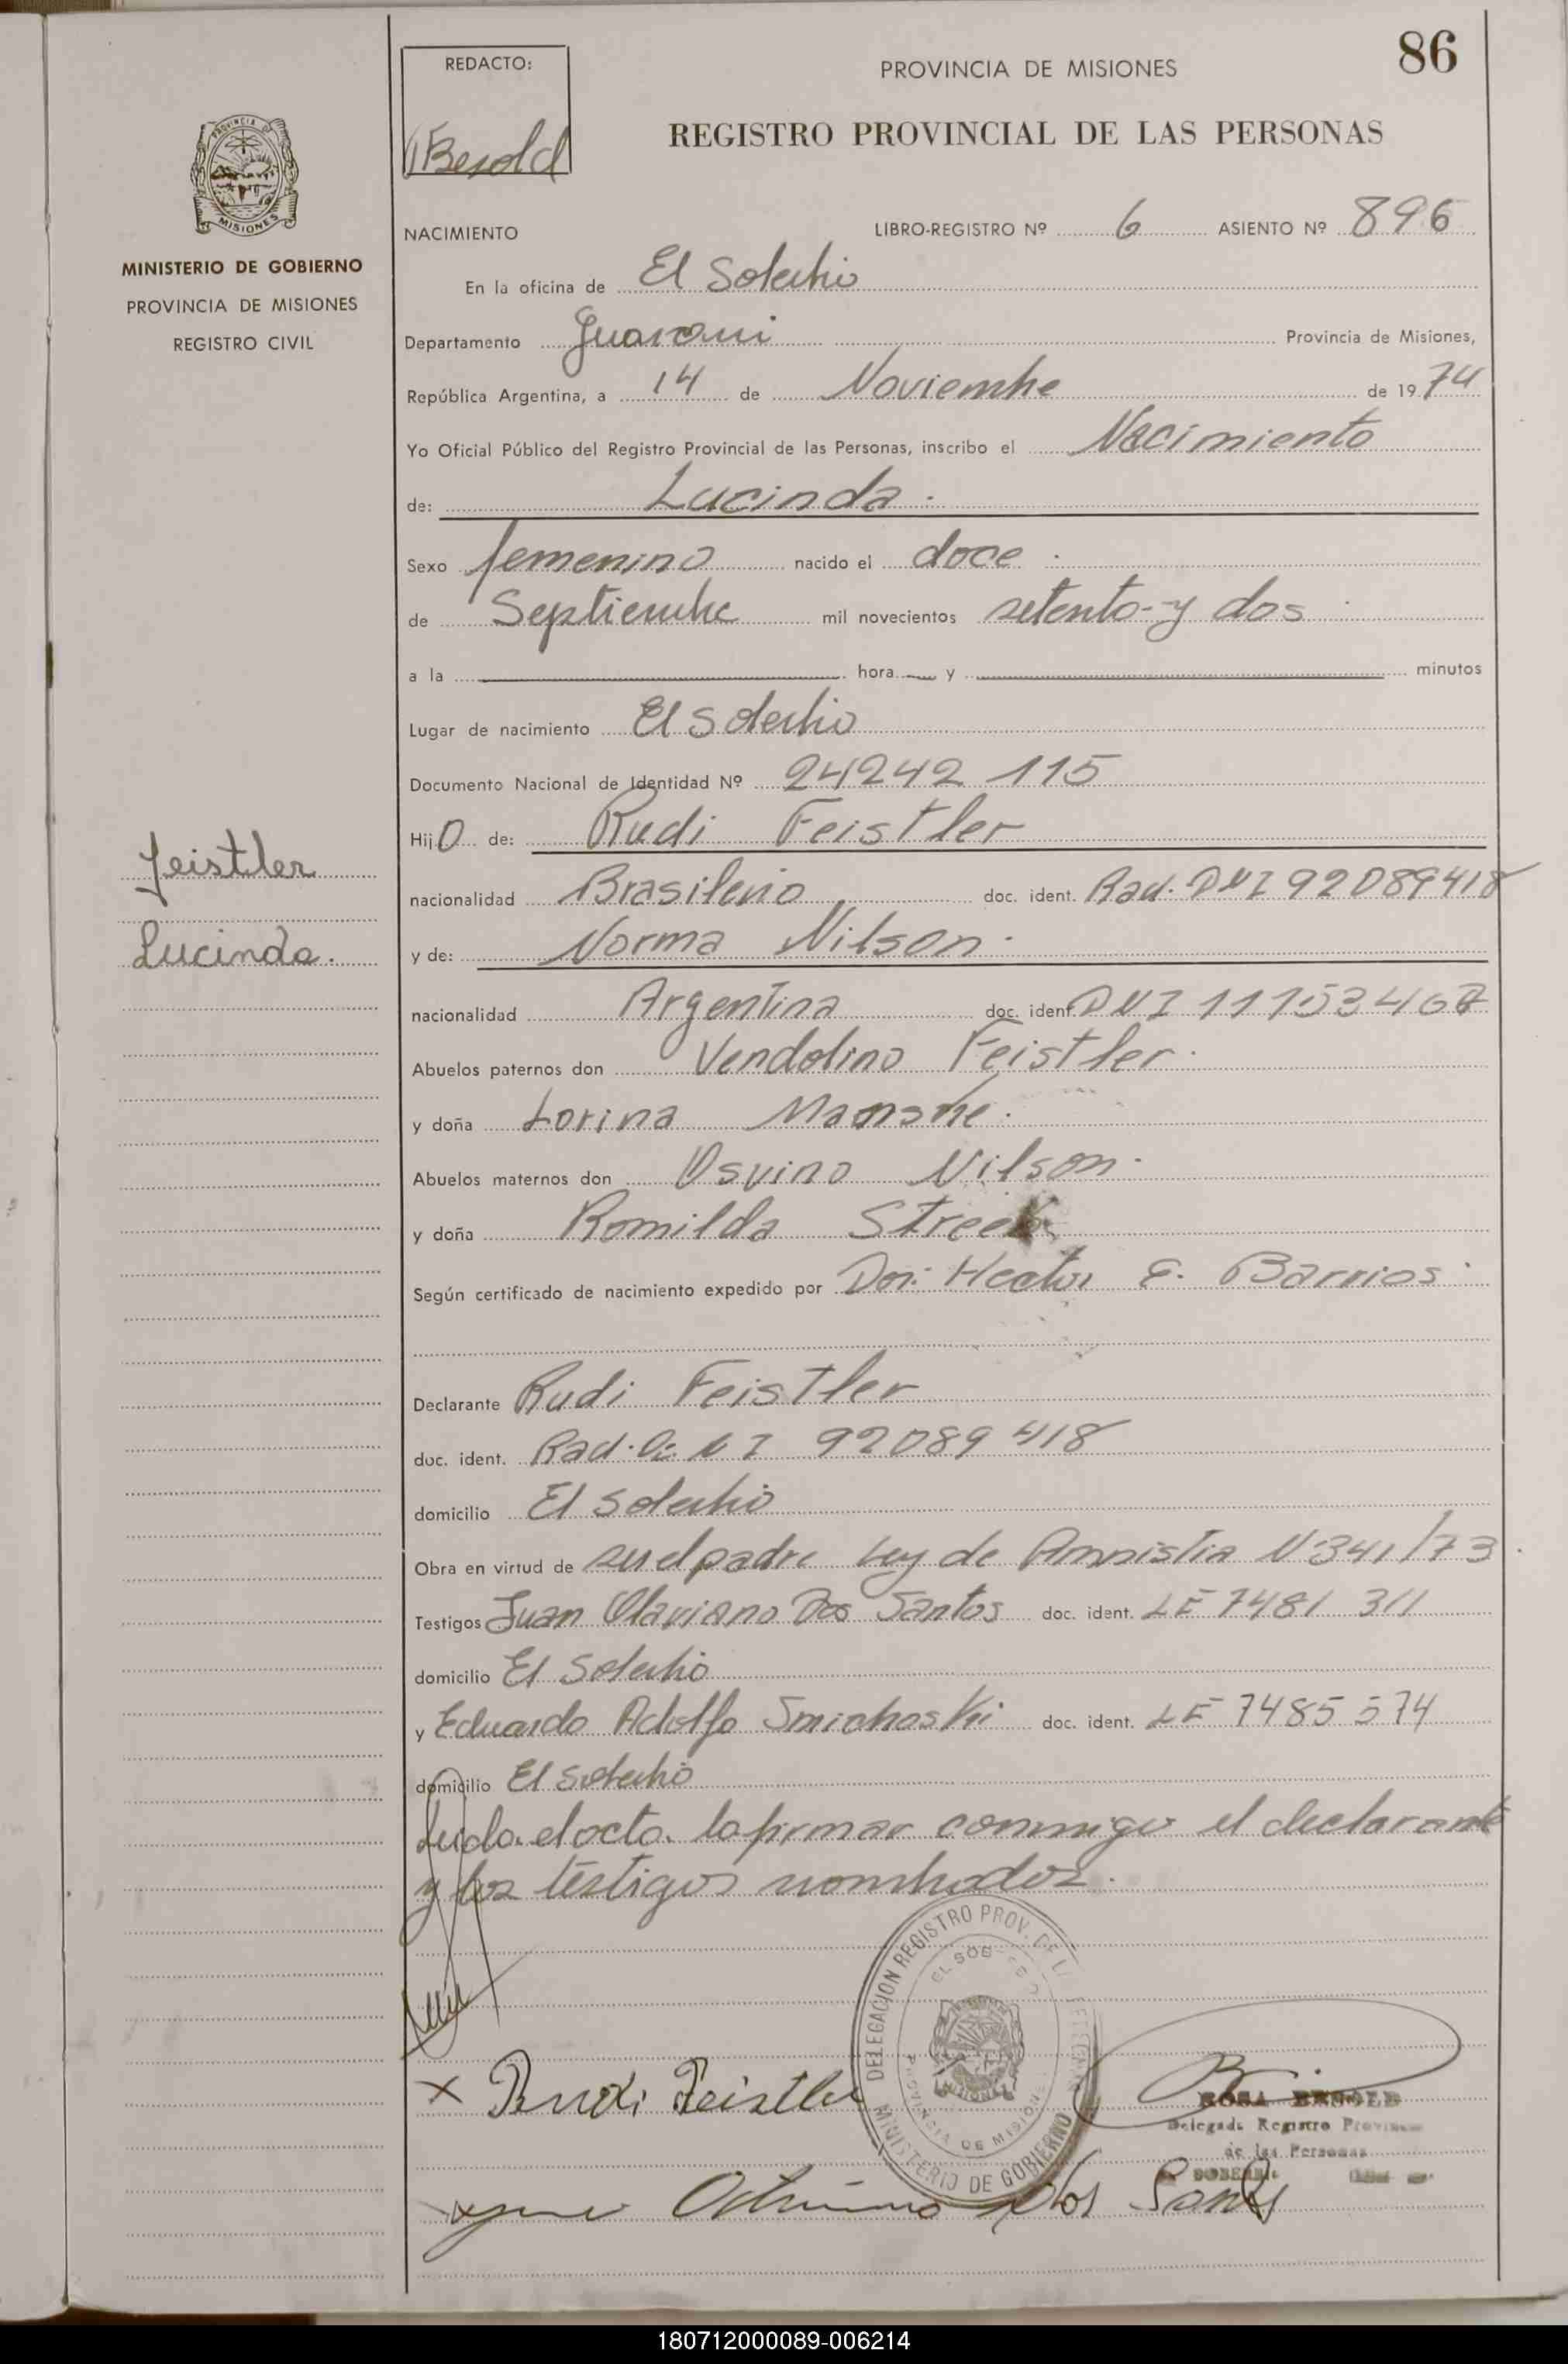 86
REDACTO:
Besold
PROVINCIA DE MISIONES
REGISTRO PROVINCIAL DE LAS PERSONAS
PROVINCIA DE
MISIONES
MINISTERIO DE GOBIERNO
PROVINCIA DE MISIONES
REGISTRO CIVIL
NACIMIENTO LIBRO-REGISTRO Nº 6 ASIENTO Nº 896
En la oficina de El Soberbio
Departamento Guarani Provincia de Misiones,
República Argentina, a 14 de Noviembre de 1974
Yo Oficial Público del Registro Provincial de las Personas, inscribo el Nacimiento
de: Lucinda.
Sexo femenino nacido el doce
de Septiembre mil novecientos setenta y dos
a la hora y minutos
Lugar de nacimiento El Soberbio
Documento Nacional de Identidad Nº 24242 115
Hijo de: Rudi Feistler
Feistler
Lucinda.
nacionalidad Brasileño doc. ident. Rad. DNI 92089418
y de: Norma Nilson.
nacionalidad Argentina doc. ident. DNI
Abuelos paternos don Vendolino Feistler.
y doña Lorina
Abuelos maternos don Osvino Nilson.
y doña Romilda
Según certificado de nacimiento expedido por Hector E. Barrios
Declarante Rudi Feistler
doc. ident. Rad. D. N I 92089 418
domicilio El Soberbio
Obra en virtud de ser el padre Ley de Amnistia N 341/73
Testigos Juan Dos Santos doc. ident. LE 7481 311
domicilio El Soberbio
y Eduardo Adolfo Smichoski doc. ident. LE 7485 574
domicilio El Soberbio
Leida el acta la firman conmigo el declarante
y los testigos nombrados.
DELEGACION REGISTRO PROV. DE
MINISTERIO DE GOBIERNO
PROVINCIA DE MISIONES
x Rudi Feistler
ROSA BESOLD
Delegada Registro
de las Personas
dos Santos
180712000089-006214